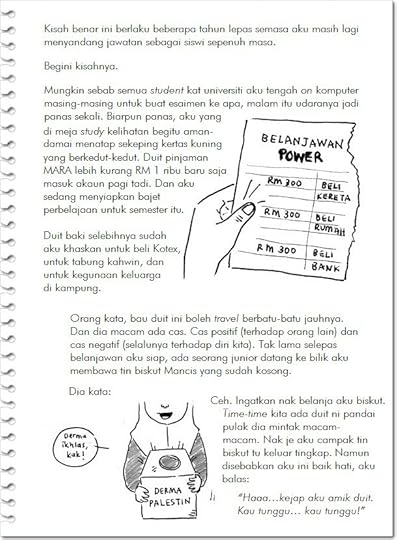 Kisah benar ini berlaku beberapa tahun lepas semasa aku masih lagi
menyandang jawatan sebagai siswi sepenuh masa.
Begini kisahnya.
Mungkin sebab semua student kat universiti aku tengah on komputer
masing-masing untuk buat esaimen ke apa, malam itu udaranya jadi
panas sekali. Biarpun panas, aku yang
di meja study kelihatan begitu aman-
damai menatap sekeping kertas kuning
yang berkedut-kedut. Duit pinjaman
MARA lebih kurang RM 1 ribu baru saja
masuk akaun pagi tadi. Dan aku
sedang menyiapkan bajet
perbelajaan untuk semester itu.
BELANJAWAN
POWER
RM 300 BELI
KERETA
RM 300 BELI
RUMAH
RM 300 BELI
BANK
Duit baki selebihnya sudah
aku khaskan untuk beli Kotex,
untuk tabung kahwin, dan
untuk kegunaan keluarga
di kampung.
Orang kata, bau duit ini boleh travel berbatu-batu jauhnya.
Dan dia macam ada cas. Cas positif (terhadap orang lain) dan
cas negatif (selalunya terhadap diri kita). Tak lama selepas
belanjawan aku siap, ada seorang junior datang ke bilik aku
membawa tin biskut Mancis yang sudah kosong.
Dia kata:
Derma
ikhlas,
kak!
DERMA
PALESTIN
Ceh. Ingatkan nak belanja aku biskut.
Time-time kita ada duit ni pandai
pulak dia mintak macam-
macam. Nak je aku campak tin
biskut tu keluar tingkap. Namun
disebabkan aku ini baik hati, aku
balas:
“Haaa...kejap aku amik duit.
Kau tunggu... kau tunggu!”